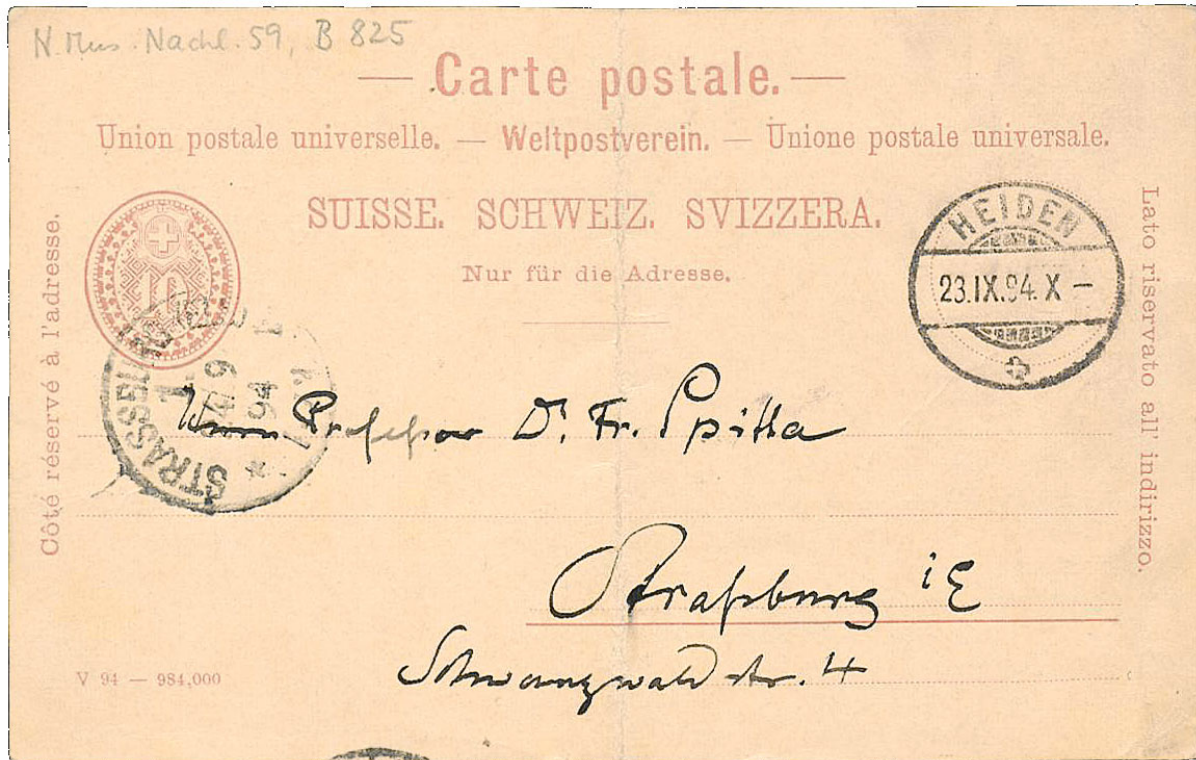 N. Mus. Nachl. 59, B 825
— Carte postale. —
Union postale universelle. — Weltpostverein. — Unione postale universale.
SUISSE. SCHWEIZ. SVIZZERA.
Nur für die Adresse.
Côté réservé à l'adresse.
Lato riservato all' indirizzo.
10
HEIDEN
23.IX.94. X –
STRASSBURG
24 9
94
Herrn Professor Dr. Fr. Spitta
Straßburg i E
Schwarzwald str. 4
V 94 — 984,000